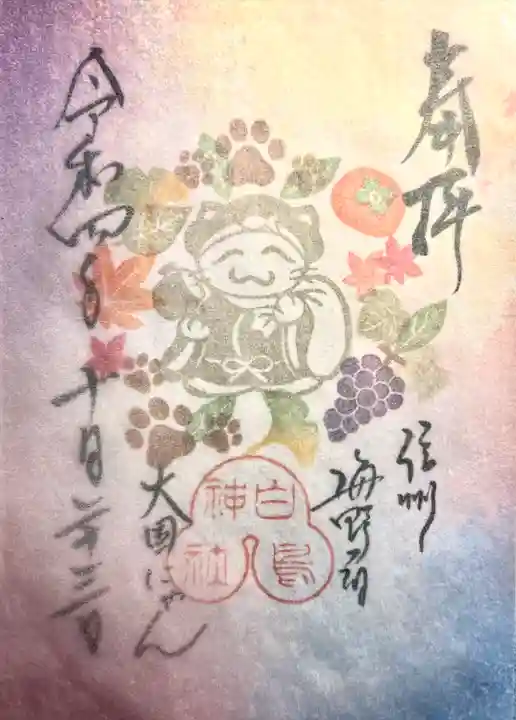 奉拝
信州
海野宿
白鳥
神社
大国にゃん
令和四年十月二十三日